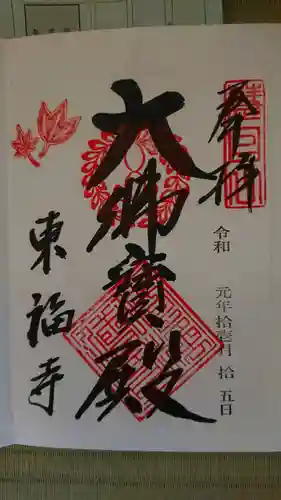 奉拝
令和 元年拾壱月 拾五日
大佛寳殿
東福寺